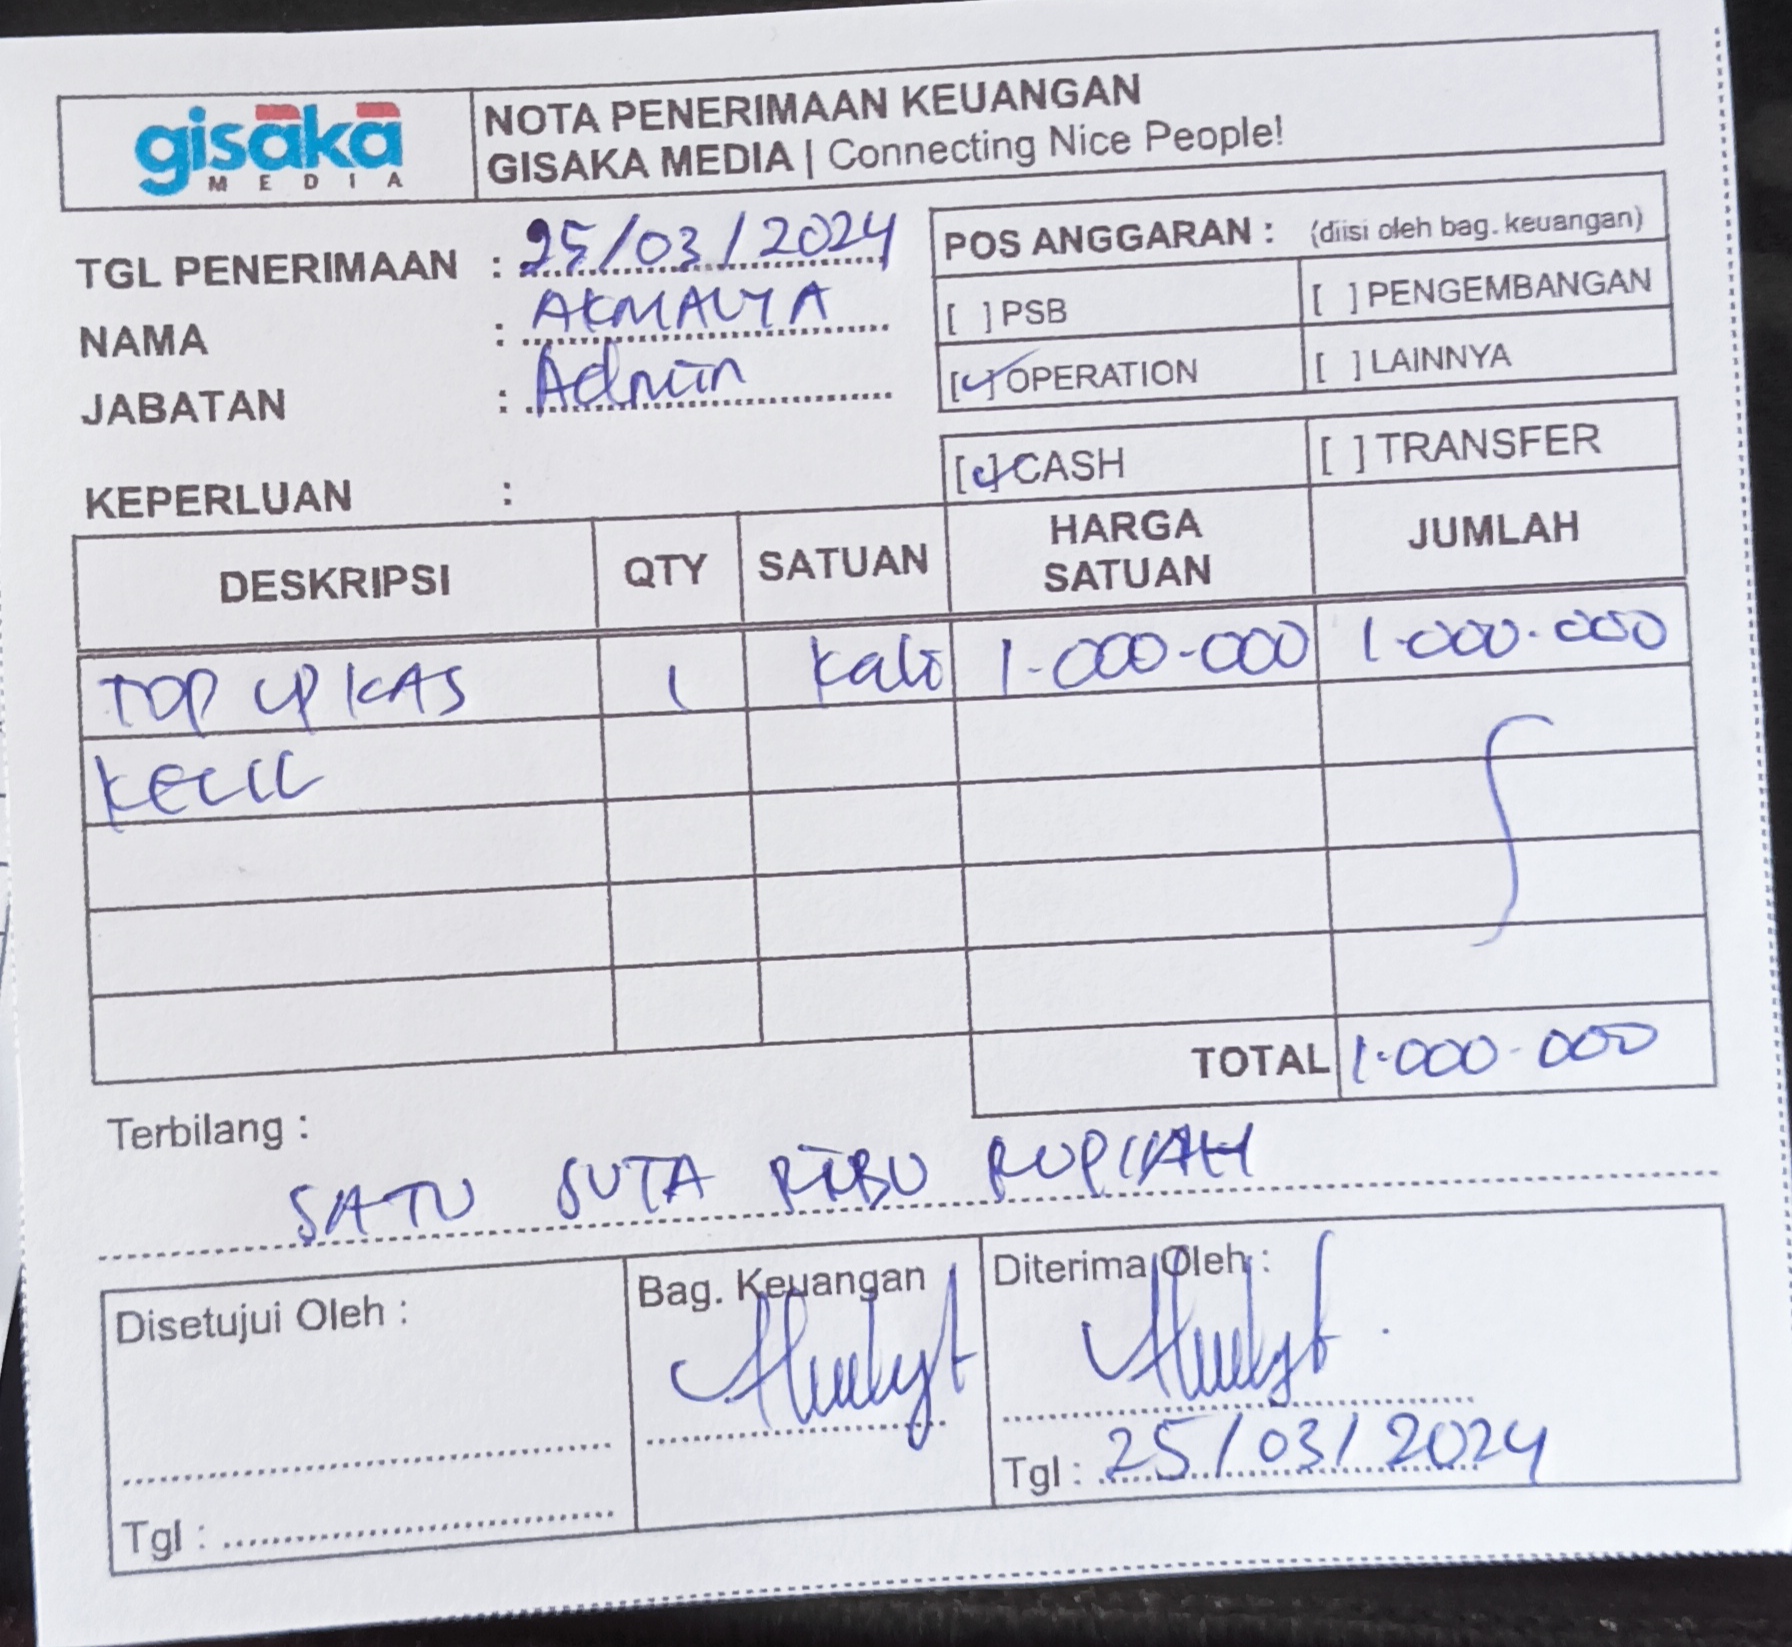 gisaka
MEDIA
NOTA PENERIMAAN KEUANGAN
GISAKA MEDIA | Connecting Nice People!
TGL PENERIMAAN : 25/03/2024
NAMA : AKMALIYA
JABATAN : Admin
KEPERLUAN :
POS ANGGARAN : (diisi oleh bag. keuangan)
[ ] PSB [ ] PENGEMBANGAN
[✓] OPERATION [ ] LAINNYA
[✓] CASH [ ] TRANSFER
DESKRIPSI QTY SATUAN HARGA SATUAN JUMLAH
TOP UP KAS 1 Kali 1.000.000 1.000.000
KECIL
TOTAL 1.000.000
Terbilang :
SATU JUTA RIBU RUPIAH
Disetujui Oleh : Bag. Keuangan Diterima Oleh :
Tgl : Tgl : 25/03/2024